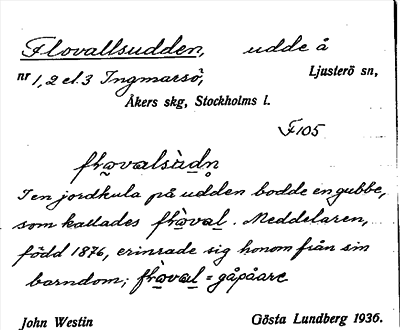 Flovallsudden, udde å
nr 1, 2 el. 3 Ingmarsö, Ljusterö sn,
Åkers skg, Stockholms l.
F105
I en jordkula på udden bodde en gubbe,
som kallades . Meddelaren,
född 1876, erinrade sig honom från sin
barndom; = gåpåare
John Westin Gösta Lundberg 1936.